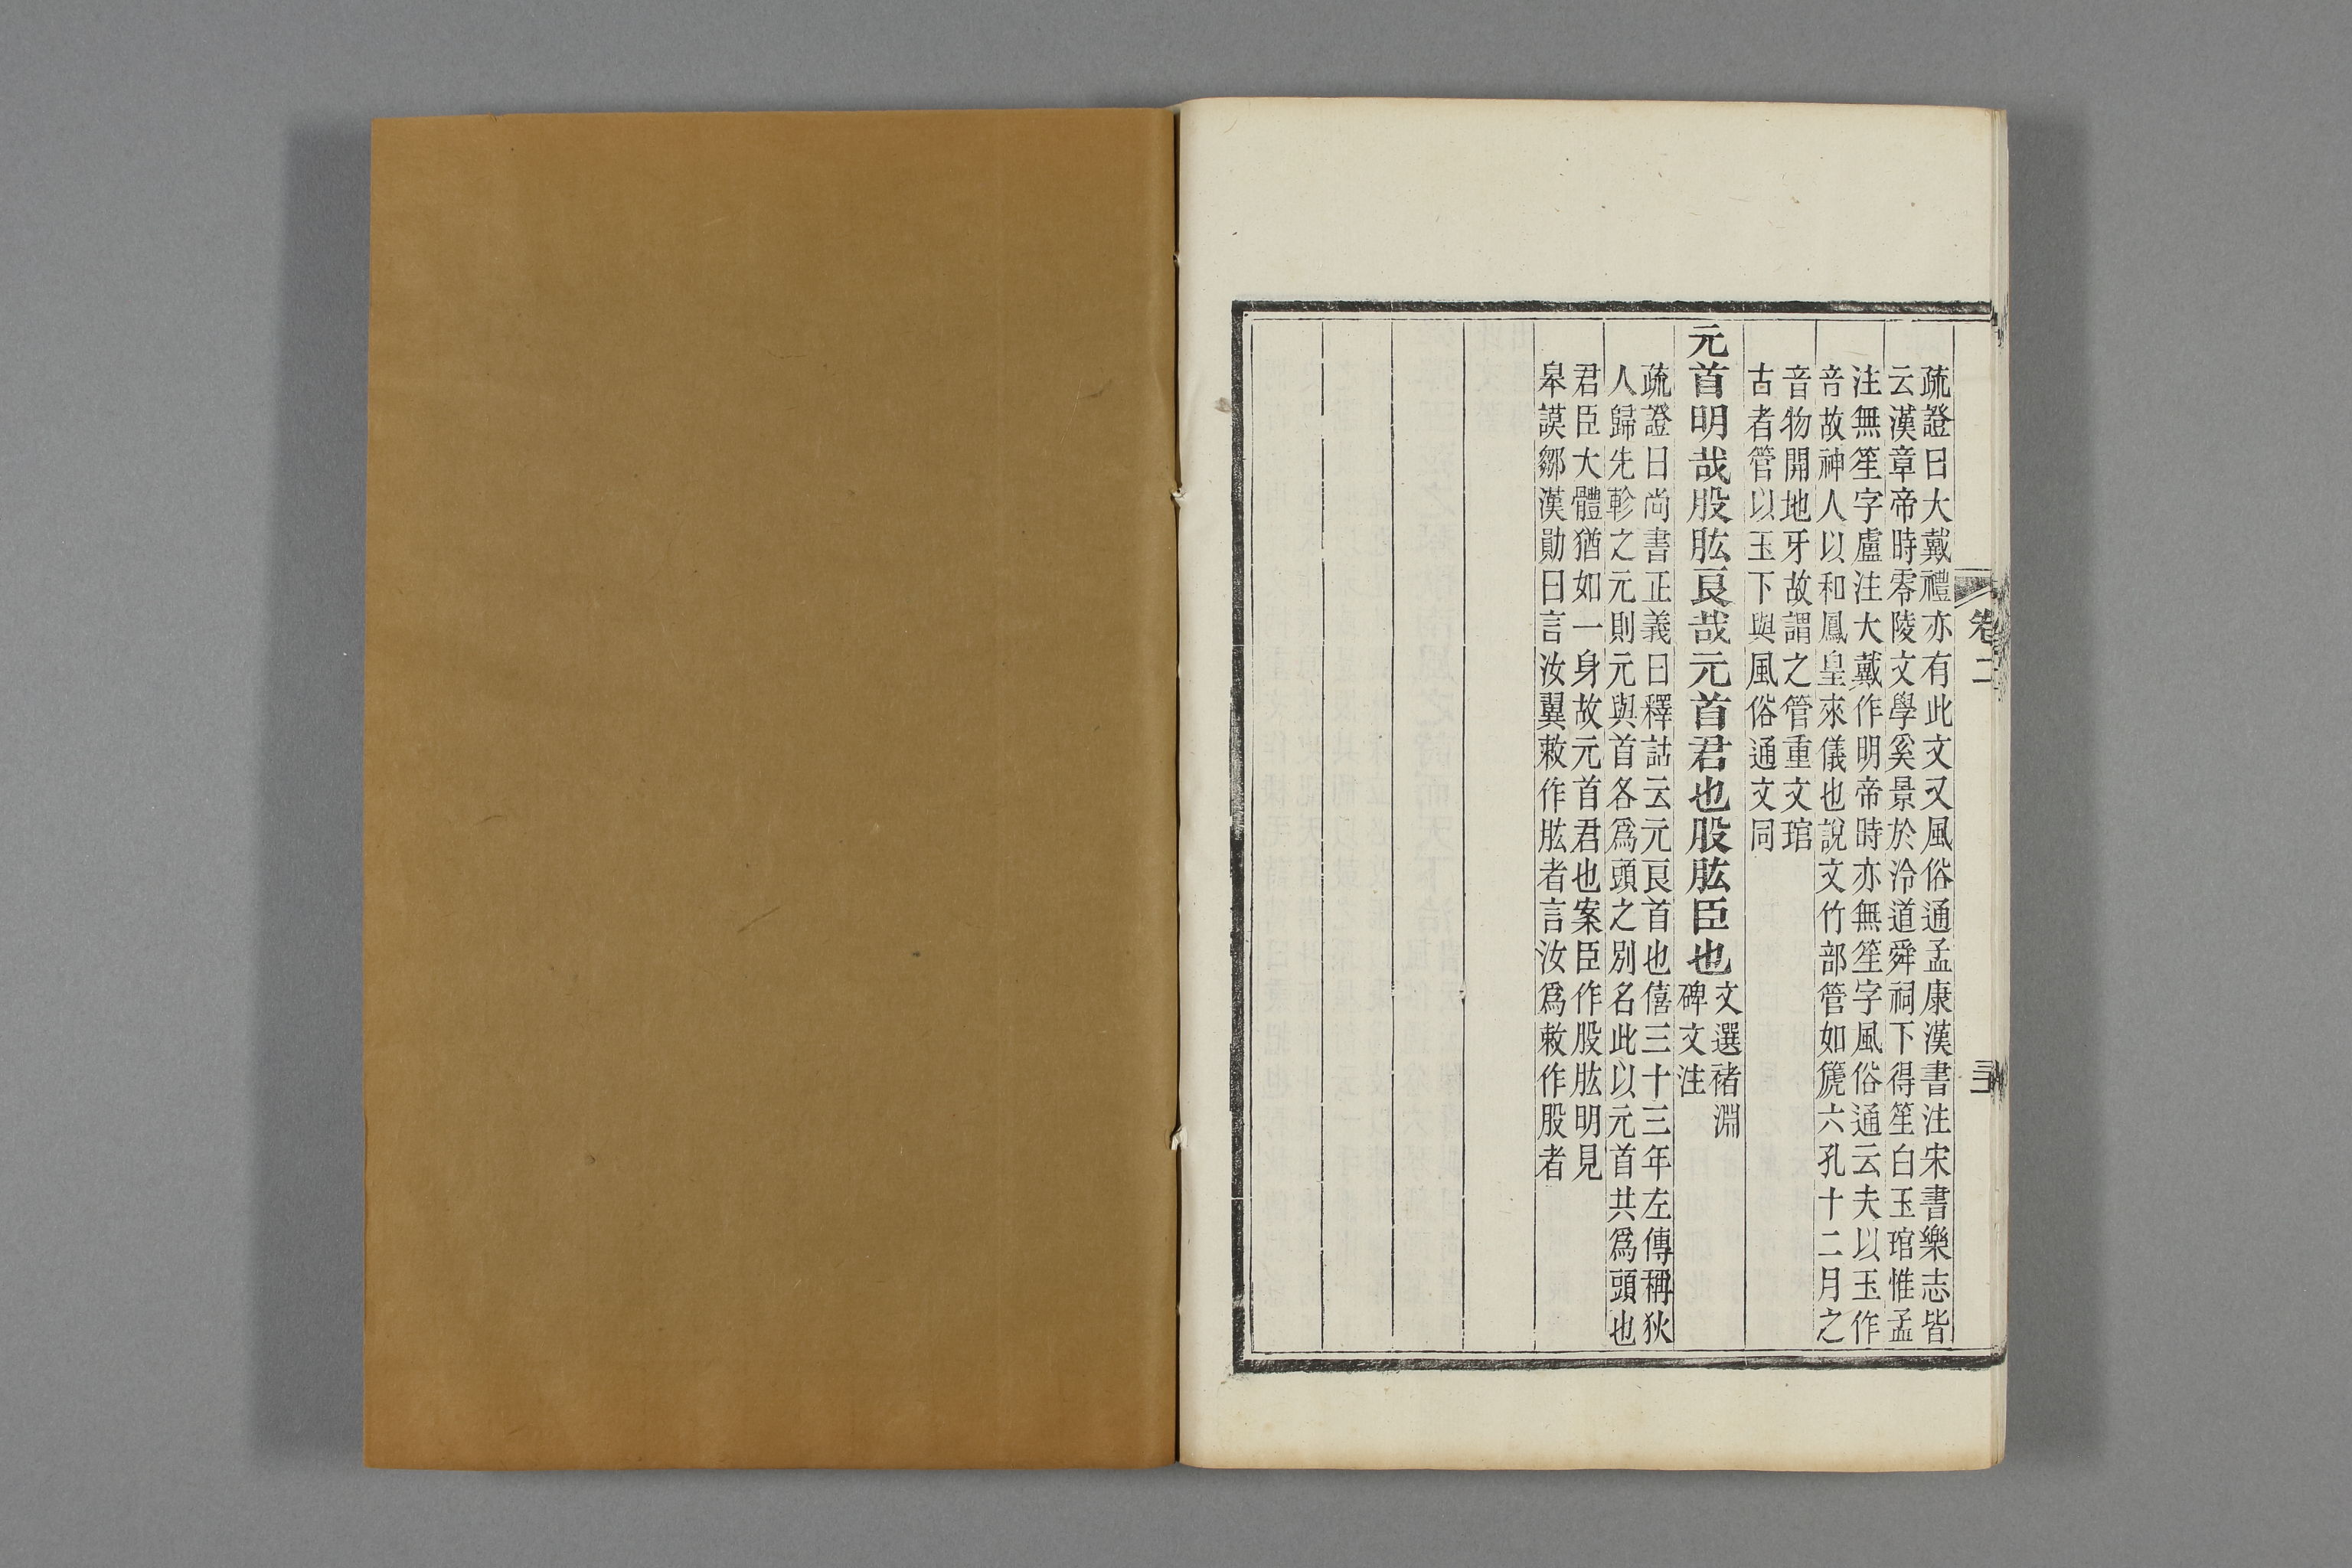 疏證曰大戴禮亦有此文又風俗通孟康漢書注宋書樂志皆
云漢章帝時零陵文學奚景於泠道舜祠下得笙白玉琯惟孟
注無笙字盧注大戴作明帝時亦無笙字風俗通云夫以玉作
音故神人以和鳳皇來儀也說文竹部管如篪六孔十二月之
音物開地牙故謂之管重文琯
古者管以玉下與風俗通文同
元首明哉股肱良哉元首君也股肱臣也
文選褚淵
碑文注
疏證曰尚書正義曰釋詁云元良首也僖三十三年左傳稱狄
人歸先軫之元則元與首各爲頭之別名此以元首共爲頭也
君臣大體猶如一身故元首君也案臣作股肱明見
皋謨鄒漢勛曰言汝翼敕作肱者言汝爲敕作股者
卷二